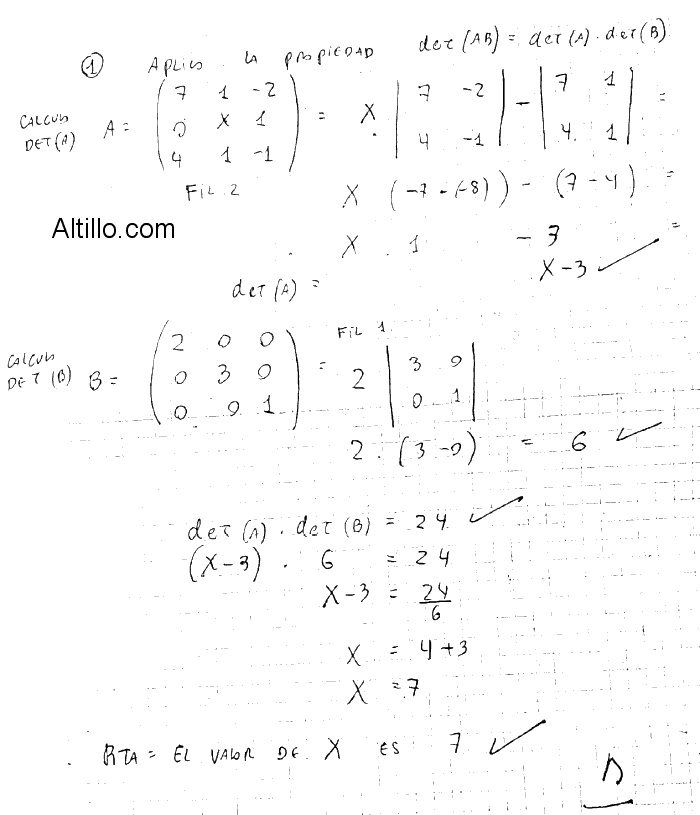 ① APLICO LA PROPIEDAD det(AB) = det(A) . det(B)
CALCULO DET(A) A = ( 7 1 -2 ; 0 X 1 ; 4 1 -1 ) = X . | 7 -2 ; 4 -1 | - | 7 1 ; 4 1 | =
FIL 2
X (-7 - (-8)) - (7 - 4) =
Altillo.com
X . 1 - 3 =
X - 3 ✓
det(A) =
CALCULO DET(B) B = ( 2 0 0 ; 0 3 0 ; 0 0 1 ) = FIL 1 2 | 3 0 ; 0 1 |
2 . (3 - 0) = 6 ✓
det(A) . det(B) = 24 ✓
(X - 3) . 6 = 24
X - 3 = 24/6
X = 4 + 3
X = 7
RTA = EL VALOR DE X ES 7 ✓